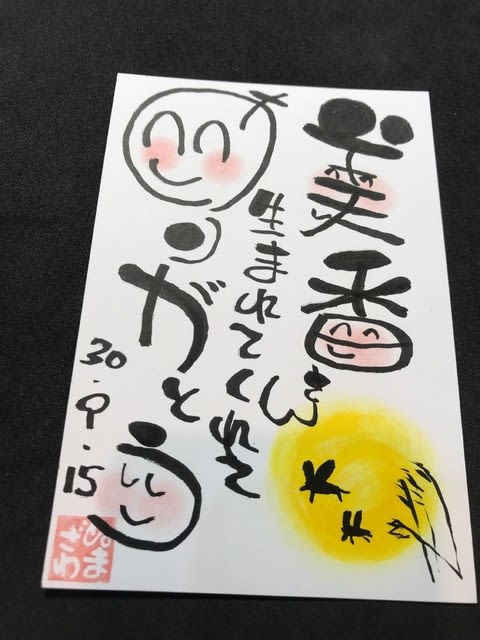 美香さん
生まれてくれて
ありがとう
30.9.15